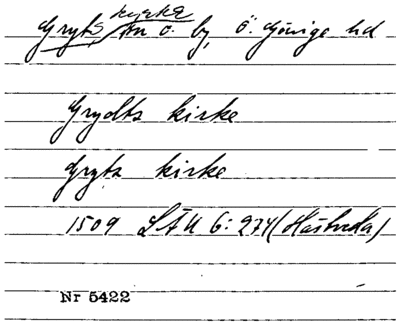 kyrka
Gryts sn o. by, Ö. Göinge hd
Grydts kirke
Gryts kirke
1509 LÄU 6:274 (Hästveda)
Nr 5422